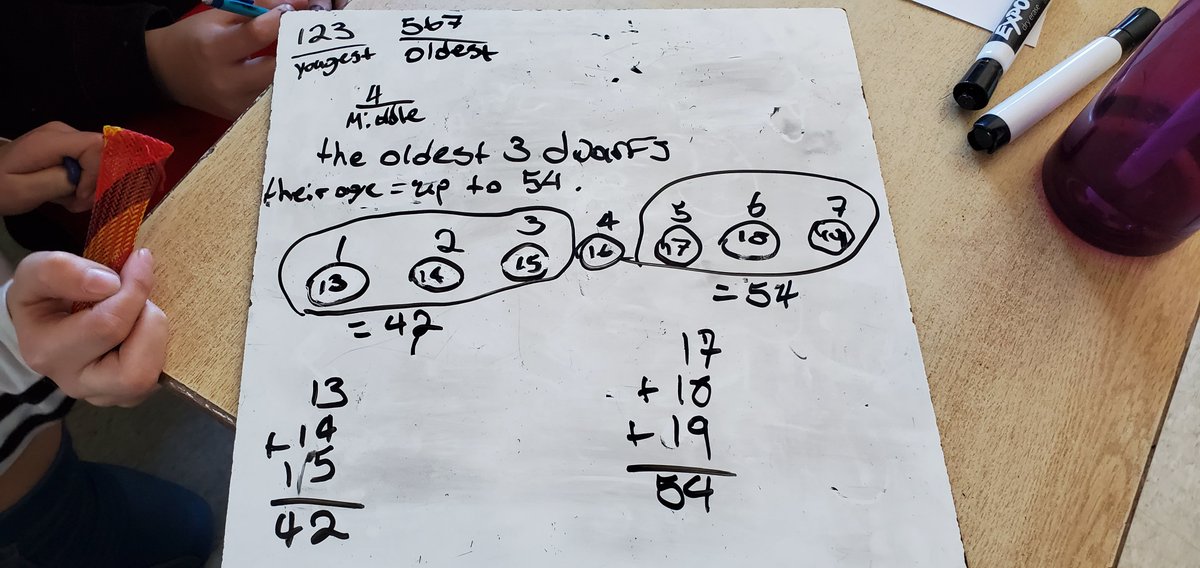 123 567
yougest oldest
4
Middle
the oldest 3 dwarfs
their age = up to 54.
1 2 3 4 5 6 7
13 14 15 16 17 18 19
= 42 = 54
13
+14
15
42
17
+ 18
+ 19
54
EXPO
dry erase